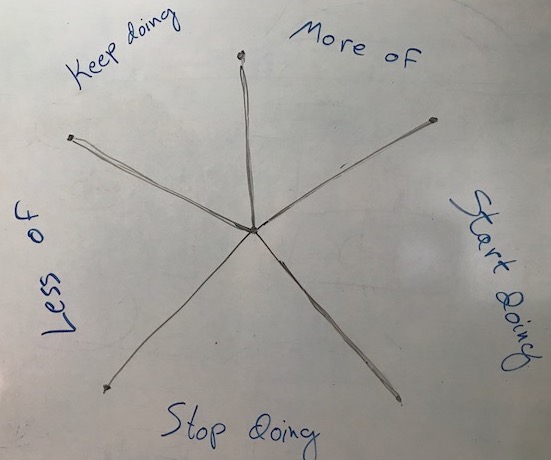 Keep doing
More of
Start Doing
Stop Doing
Less of